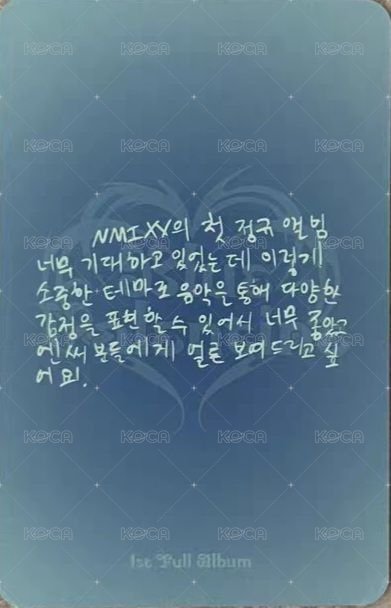 KOCA KOCA KOCA
KOCA KOCA KOCA
NMIXX의 첫 정규 앨범
너무 기대하고 있었는데 이렇게
소중한 테마로 음악을 통해 다양한
감정을 표현할 수 있어서 너무 좋았고
엔써 분들에게 얼른 보여드리고 싶
어요!
KOCA KOCA KOCA
KOCA KOCA KOCA
1st Full Album